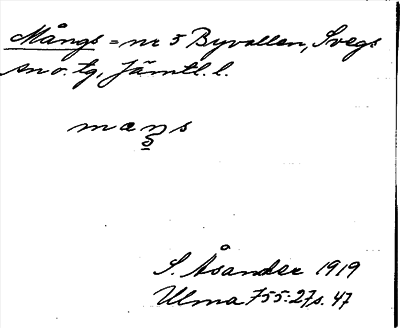 Mångs = nr 5 Byvallen, Svegs
sn o. tg, Jämtl. l.
mans
S. Åsander 1919
Ulma 755:27 s. 47